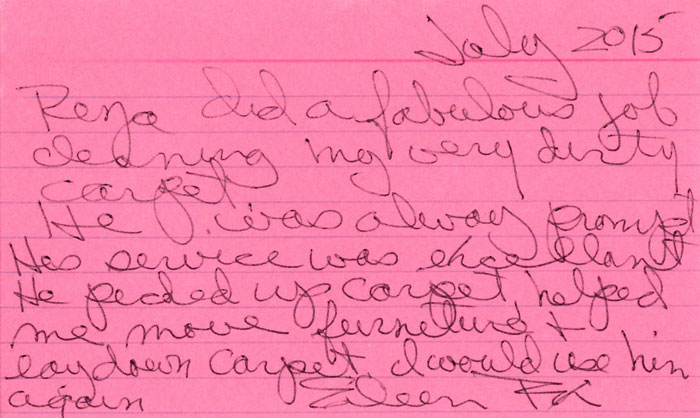 July 2015
Reza did a fabulous job
cleaning my very dirty
carpet
He was always prompt
His service was excellant
He picked up carpet, helped
me move furniture &
lay down carpet. I would use him
again Eileen